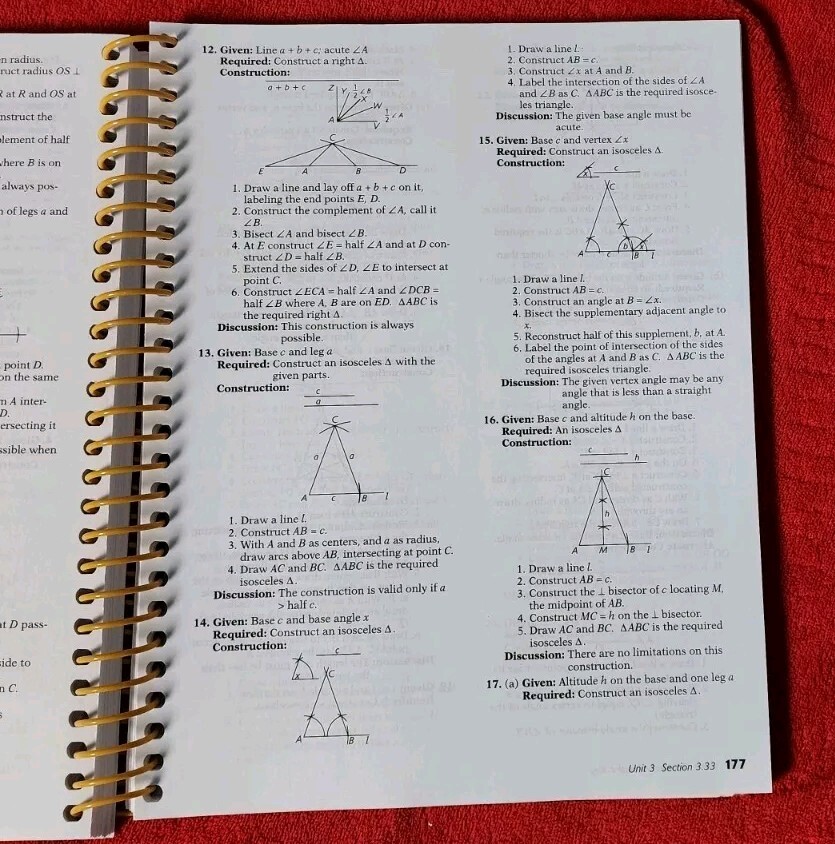 n radius.
ruct radius OS ⊥
R at R and OS at
nstruct the
plement of half
where B is on
always pos-
n of legs a and
point D.
on the same
n A inter-
D.
ersecting it
ssible when
at D pass-
side to
n C.
12. Given: Line a + b + c; acute ∠A
Required: Construct a right Δ.
Construction:
a + b + c
Z Y ½∠B
X
W
½∠A
A V
C
E A B D
1. Draw a line and lay off a + b + c on it,
labeling the end points E, D.
2. Construct the complement of ∠A, call it
∠B.
3. Bisect ∠A and bisect ∠B.
4. At E construct ∠E = half ∠A and at D con-
struct ∠D = half ∠B.
5. Extend the sides of ∠D, ∠E to intersect at
point C.
6. Construct ∠ECA = half ∠A and ∠DCB =
half ∠B where A, B are on ED. ΔABC is
the required right Δ.
Discussion: This construction is always
possible.
13. Given: Base c and leg a
Required: Construct an isosceles Δ with the
given parts.
Construction:
c
a
C
a a
A c B l
1. Draw a line l.
2. Construct AB = c.
3. With A and B as centers, and a as radius,
draw arcs above AB, intersecting at point C.
4. Draw AC and BC. ΔABC is the required
isosceles Δ.
Discussion: The construction is valid only if a
> half c.
14. Given: Base c and base angle x
Required: Construct an isosceles Δ.
Construction:
c
x
C
A B l
1. Draw a line l.
2. Construct AB = c.
3. Construct ∠x at A and B.
4. Label the intersection of the sides of ∠A
and ∠B as C. ΔABC is the required isosce-
les triangle.
Discussion: The given base angle must be
acute.
15. Given: Base c and vertex ∠x
Required: Construct an isosceles Δ.
Construction:
c
x
C
A c b B x l
1. Draw a line l.
2. Construct AB = c.
3. Construct an angle at B = ∠x.
4. Bisect the supplementary adjacent angle to
x.
5. Reconstruct half of this supplement, b, at A.
6. Label the point of intersection of the sides
of the angles at A and B as C. ΔABC is the
required isosceles triangle.
Discussion: The given vertex angle may be any
angle that is less than a straight
angle.
16. Given: Base c and altitude h on the base.
Required: An isosceles Δ
Construction:
c
h
C
h
A M B l
1. Draw a line l.
2. Construct AB = c.
3. Construct the ⊥ bisector of c locating M,
the midpoint of AB.
4. Construct MC = h on the ⊥ bisector.
5. Draw AC and BC. ΔABC is the required
isosceles Δ.
Discussion: There are no limitations on this
construction.
17. (a) Given: Altitude h on the base and one leg a
Required: Construct an isosceles Δ.
Unit 3 Section 3.33 177